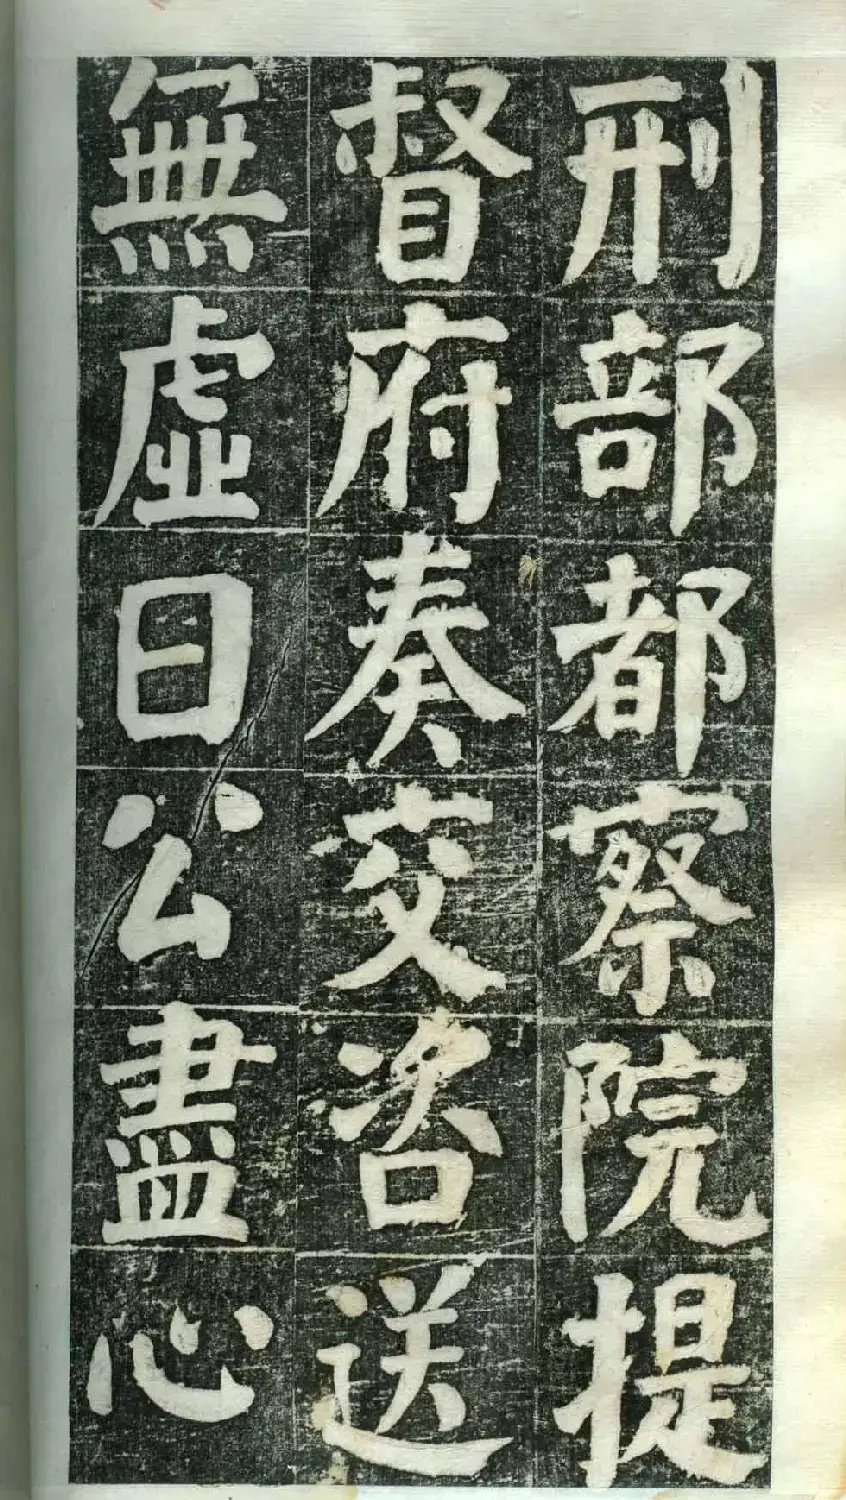 刑部都察院提
督府奏交咨送
無虛日公盡心